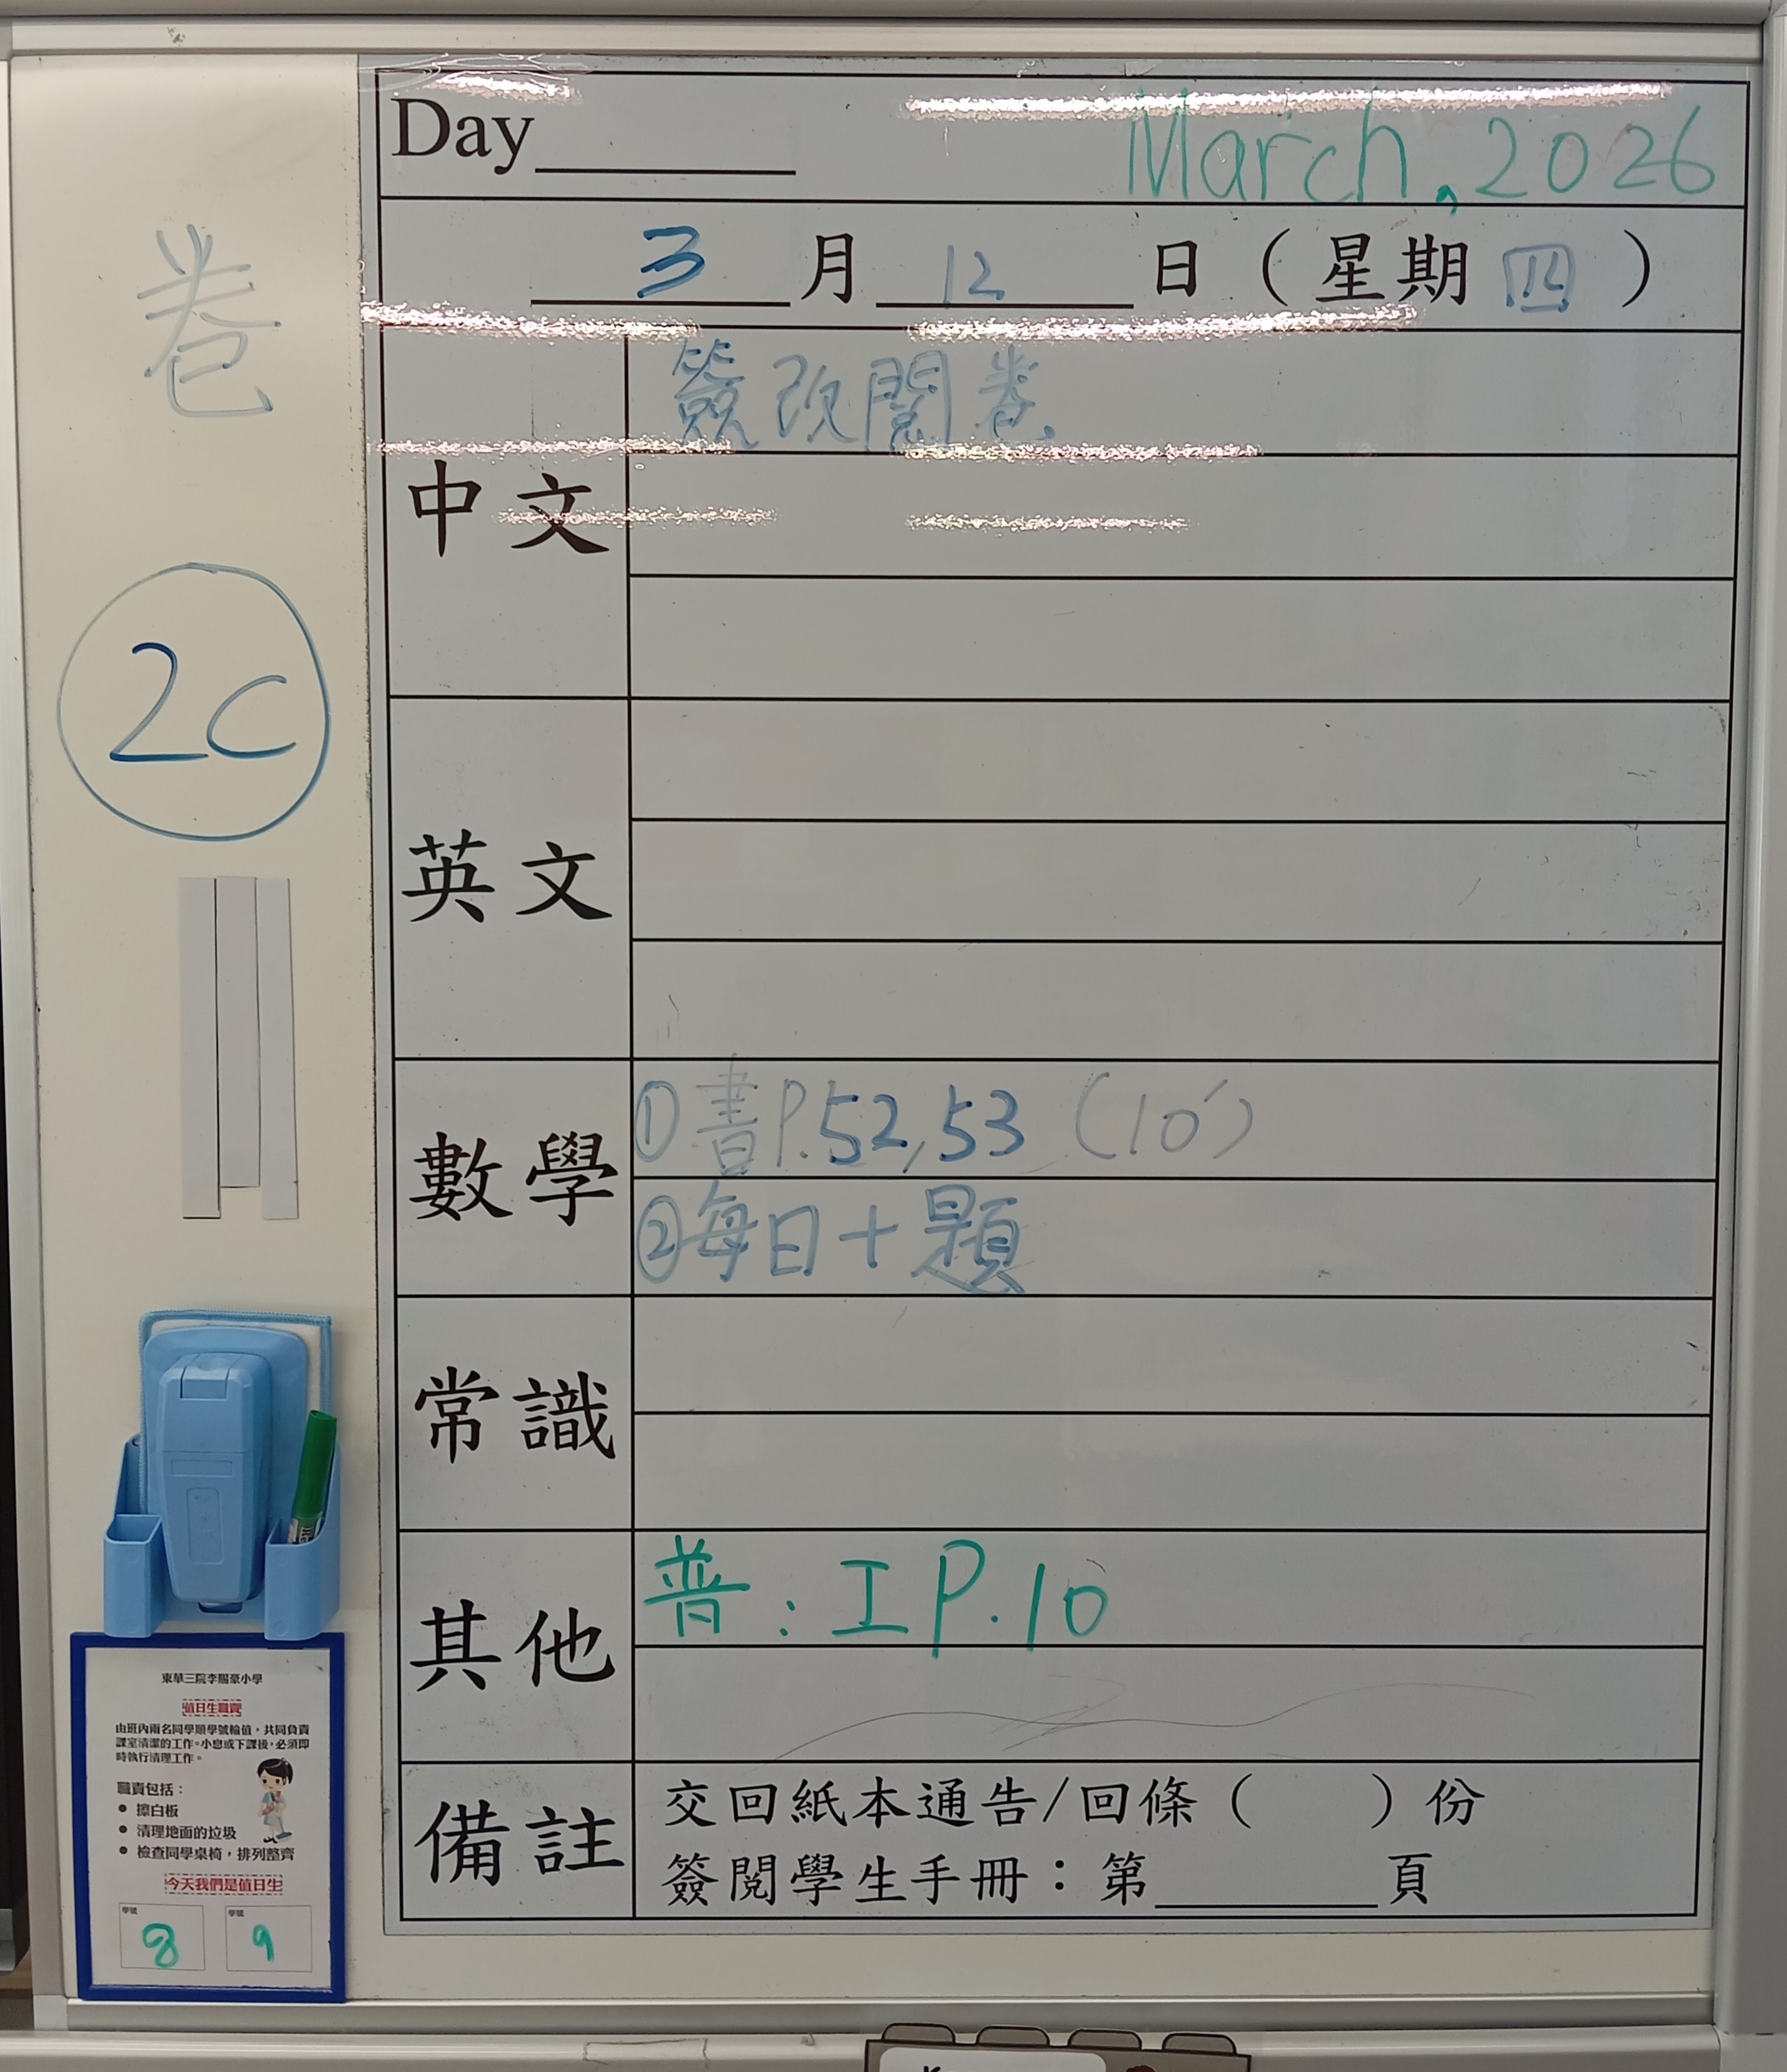 Day
March, 2026
3月12日（星期四）
卷
中文
簽改閱卷
2C
英文
數學
①書P.52,53 (10')
②每日十題
常識
其他
普：工P.10
備註
交回紙本通告/回條（　　）份
簽閱學生手冊：第______頁
東華三院李賜豪小學
值日生職責
由班內兩名同學順學號輪值，共同負責
課室清潔的工作。小息或下課後，必須即
時執行清理工作。
職責包括：
• 擦白板
• 清理地面的垃圾
• 檢查同學桌椅，排列整齊
今天我們是值日生
學號 8
學號 9